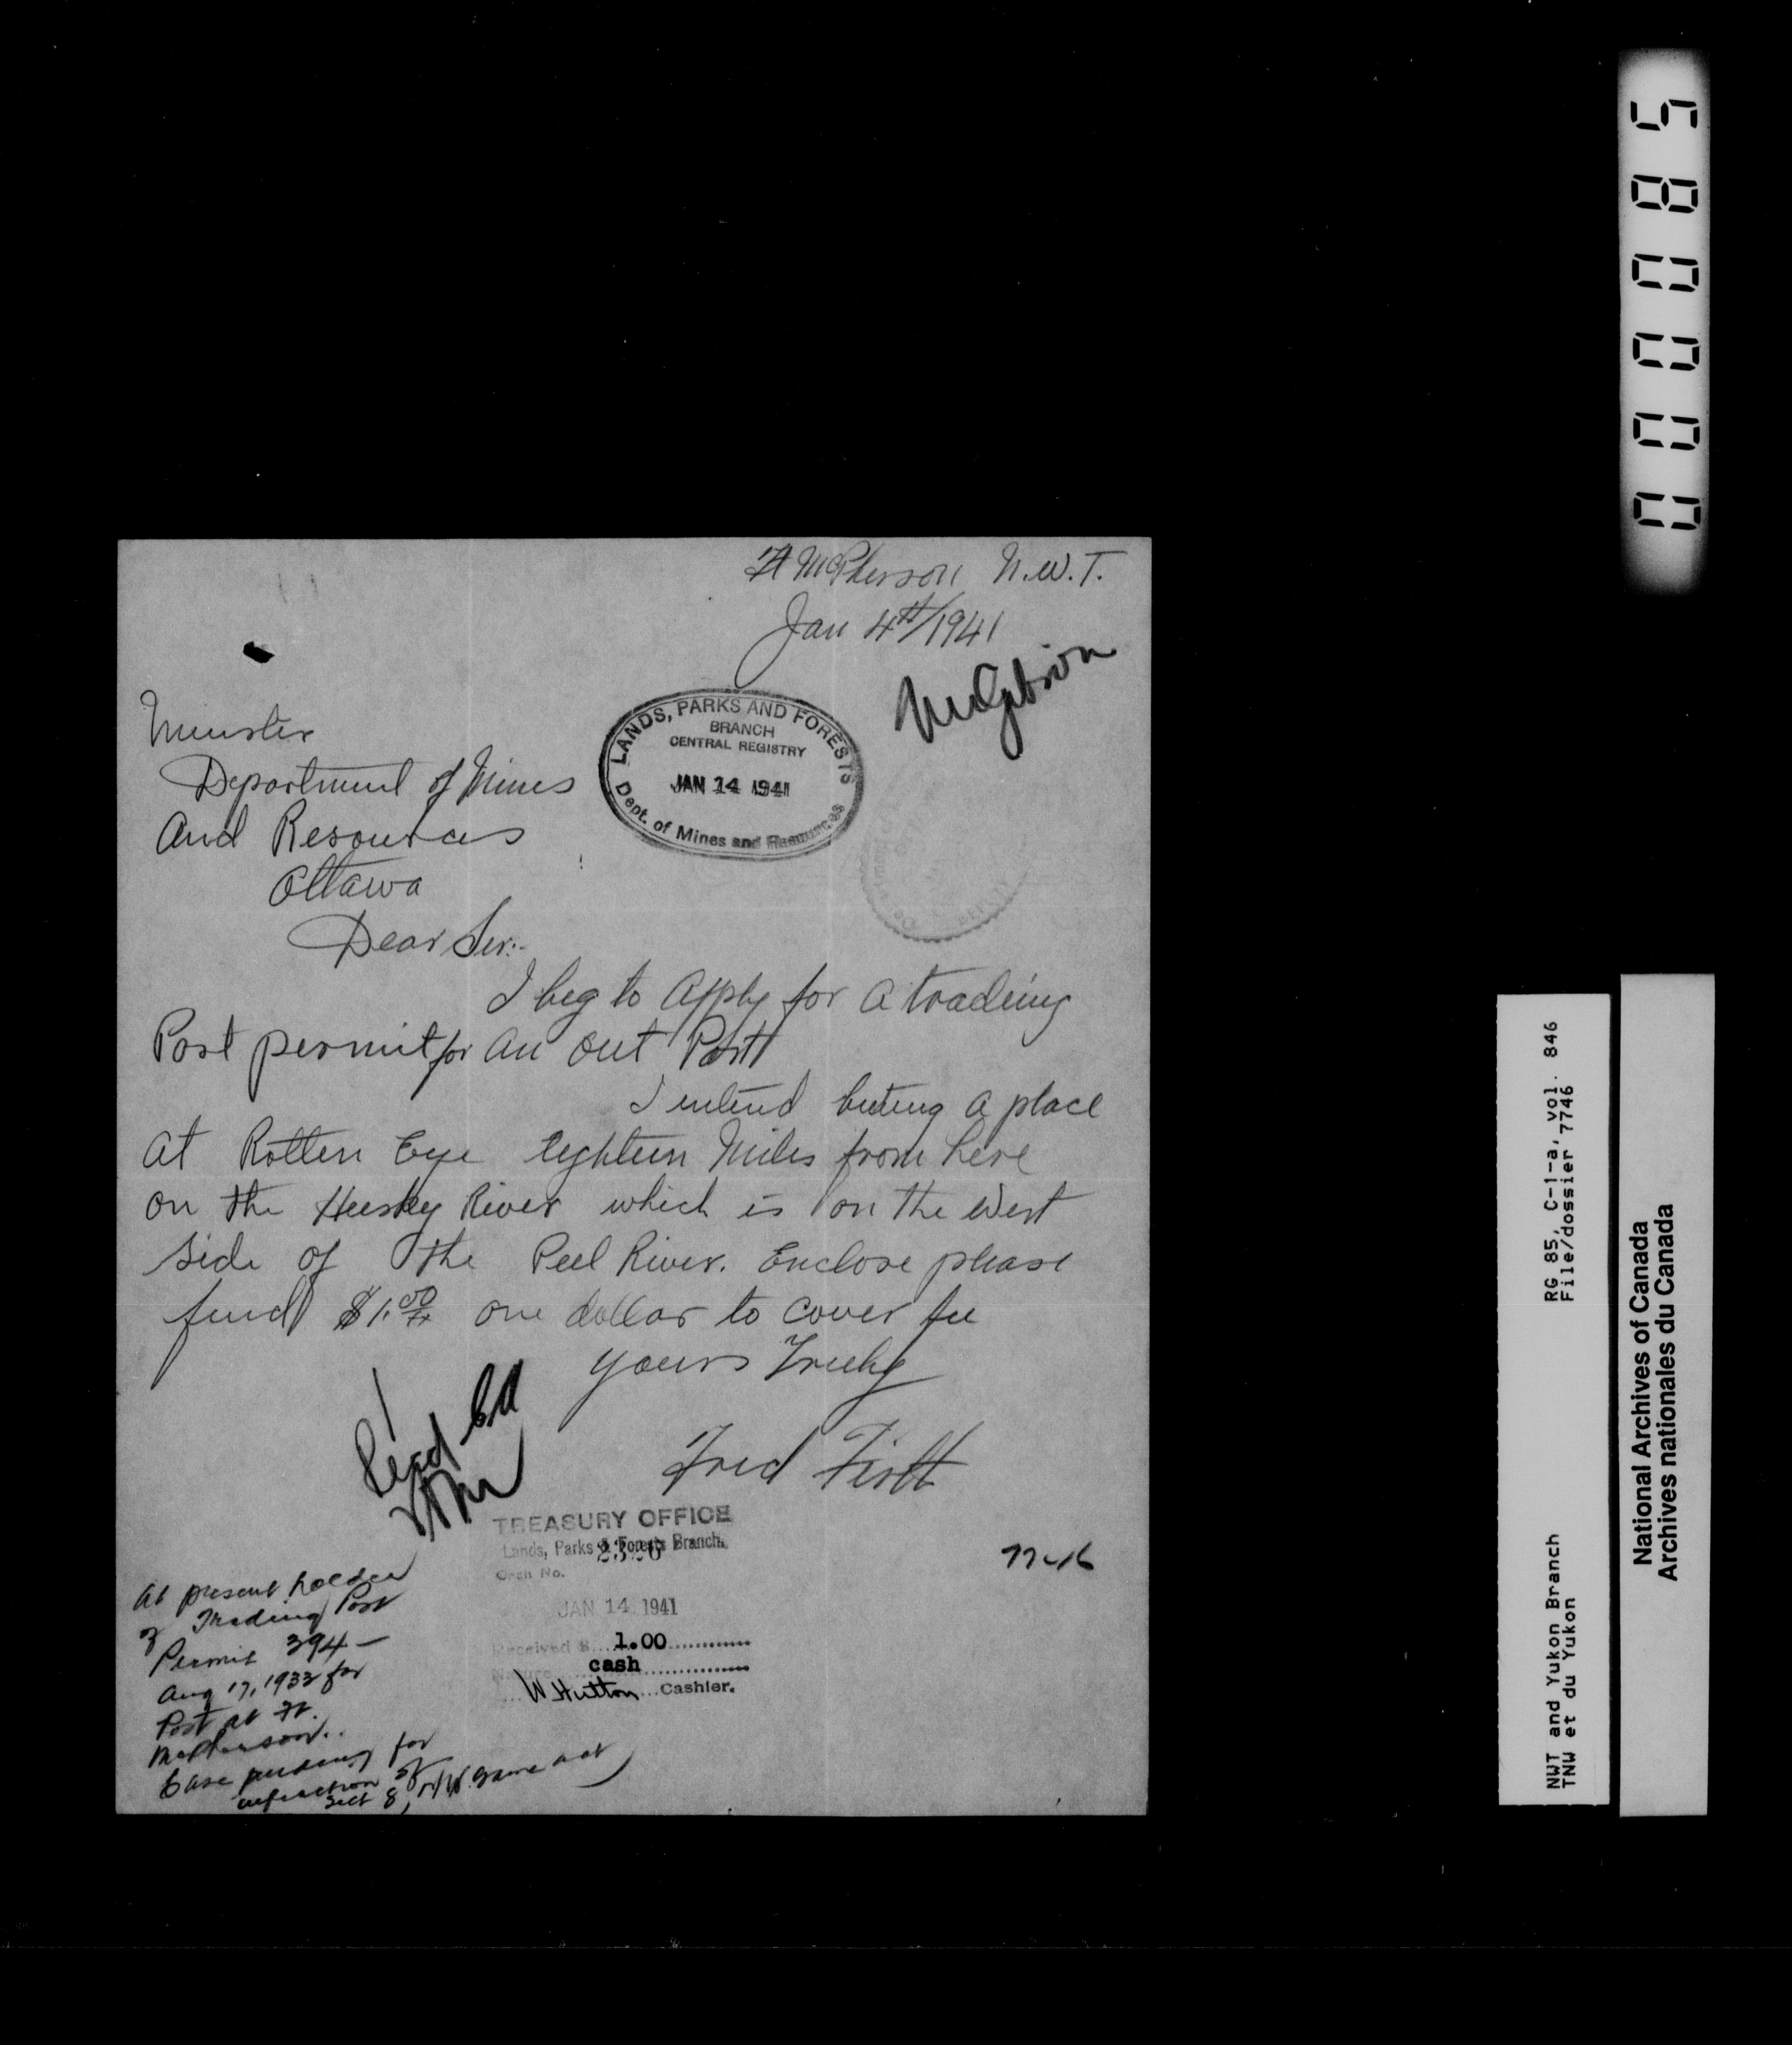 Ft McPherson N.W.T.
Jan 4th/1941
Mr Gibson
Minister
Department of Mines
And Resources
Ottawa
Dear Sir:-
LANDS, PARKS AND FORESTS
BRANCH
CENTRAL REGISTRY
JAN 14 1941
Dept. of Mines and Resources
I beg to Apply for a trading
Post permit for an Out Post
I intend buting a place
at Rotten Eye eighteen Miles from here
on the Husky River which is on the West
side of the Peel River. Enclose please
find $1.00 one dollar to cover fee
yours Truly
Fred Firth
TREASURY OFFICE
Lands, Parks & Forests Branch.
Cash No. 2326
JAN 14 1941
Received $ 1.00
Nature cash
W. Hutton Cashier.
7746
At present holder
of Trading Post
Permit 394 —
Aug 17, 1933 for
Post at Ft.
McPherson..
Case pending for
infraction of
Sect 8, NW Game act
000085
RG 85, C-1-a, vol. 846
File/dossier 7746
NWT and Yukon Branch
TNW et du Yukon
National Archives of Canada
Archives nationales du Canada